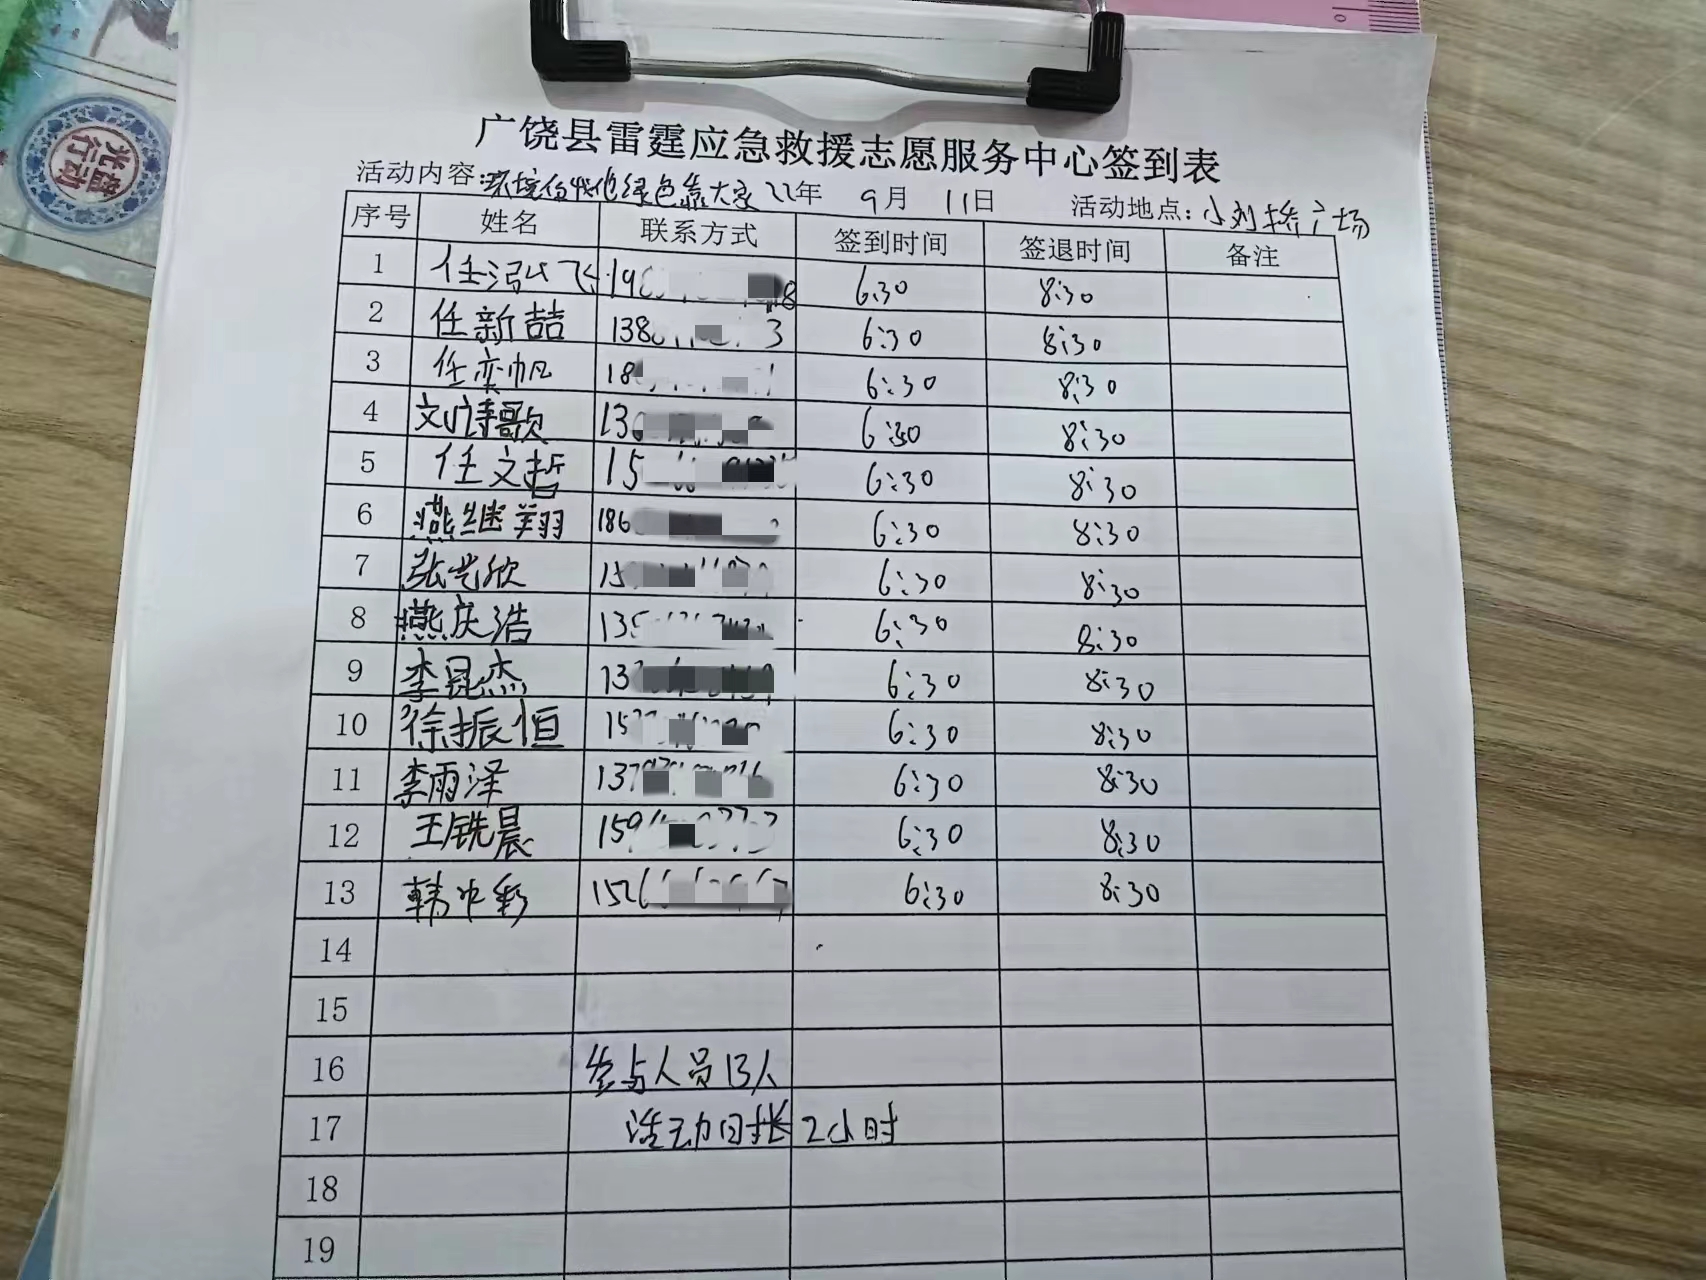 光盘
行动
广饶县雷霆应急救援志愿服务中心签到表
活动内容:环境 绿色靠大家 22年 9月 11日 活动地点:小刘桥广场
序号 姓名 联系方式 签到时间 签退时间 备注
1 任泓飞 19 8 6:30 8:30
2 任新喆 138 3 6:30 8:30
3 任奕帆 18 6:30 8:30
4 刘诗歌 13 6:30 8:30
5 任文哲 15 6:30 8:30
6 燕继翔 186 6:30 8:30
7 张艺欣 15 6:30 8:30
8 燕庆浩 135 6:30 8:30
9 李昆杰 13 6:30 8:30
10 徐振恒 15 6:30 8:30
11 李雨泽 137 6:30 8:30
12 王铣晨 159 6:30 8:30
13 韩 彩 1526 6:30 8:30
14
15
16 参与人员13人
17 活动时长2小时
18
19